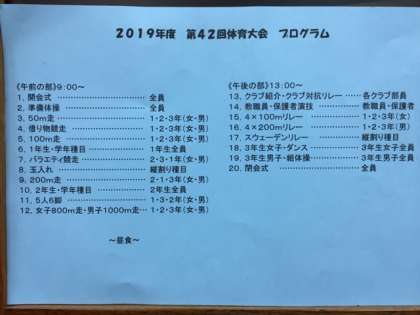 2019年度　第42回体育大会　プログラム
《午前の部》9：00～
1．開会式 ……………………… 全員
2．準備体操 ……………………… 全員
3．50m走 ……………………… 1・2・3年(女・男)
4．借り物競走 ……………………… 1・2・3年(女・男)
5．100m走 ……………………… 1・2・3年(女・男)
6．1年生・学年種目 ……………… 1年生全員
7．バラエティ競走 ……………… 2・3・1年(女・男)
8．玉入れ ……………………… 縦割り種目
9．200m走 ……………………… 2・1・3年(女・男)
10．2年生・学年種目 ……………… 2年生全員
11．5人6脚 ……………………… 1・3・2年(女・男)
12．女子800m走・男子1000m走… 1・2・3年(女・男)
～昼食～
《午後の部》13：00～
13．クラブ紹介・クラブ対抗リレー …… 各クラブ部員
14．教職員・保護者演技 ……………… 教職員・保護者
15．4×100mリレー ……………… 1・2・3年(女)
16．4×200mリレー ……………… 1・2・3年(男)
17．スウェーデンリレー ……………… 縦割り種目
18．3年生女子・ダンス ……………… 3年生女子全員
19．3年生男子・組体操 ……………… 3年生男子全員
20．閉会式 ……………………… 全員